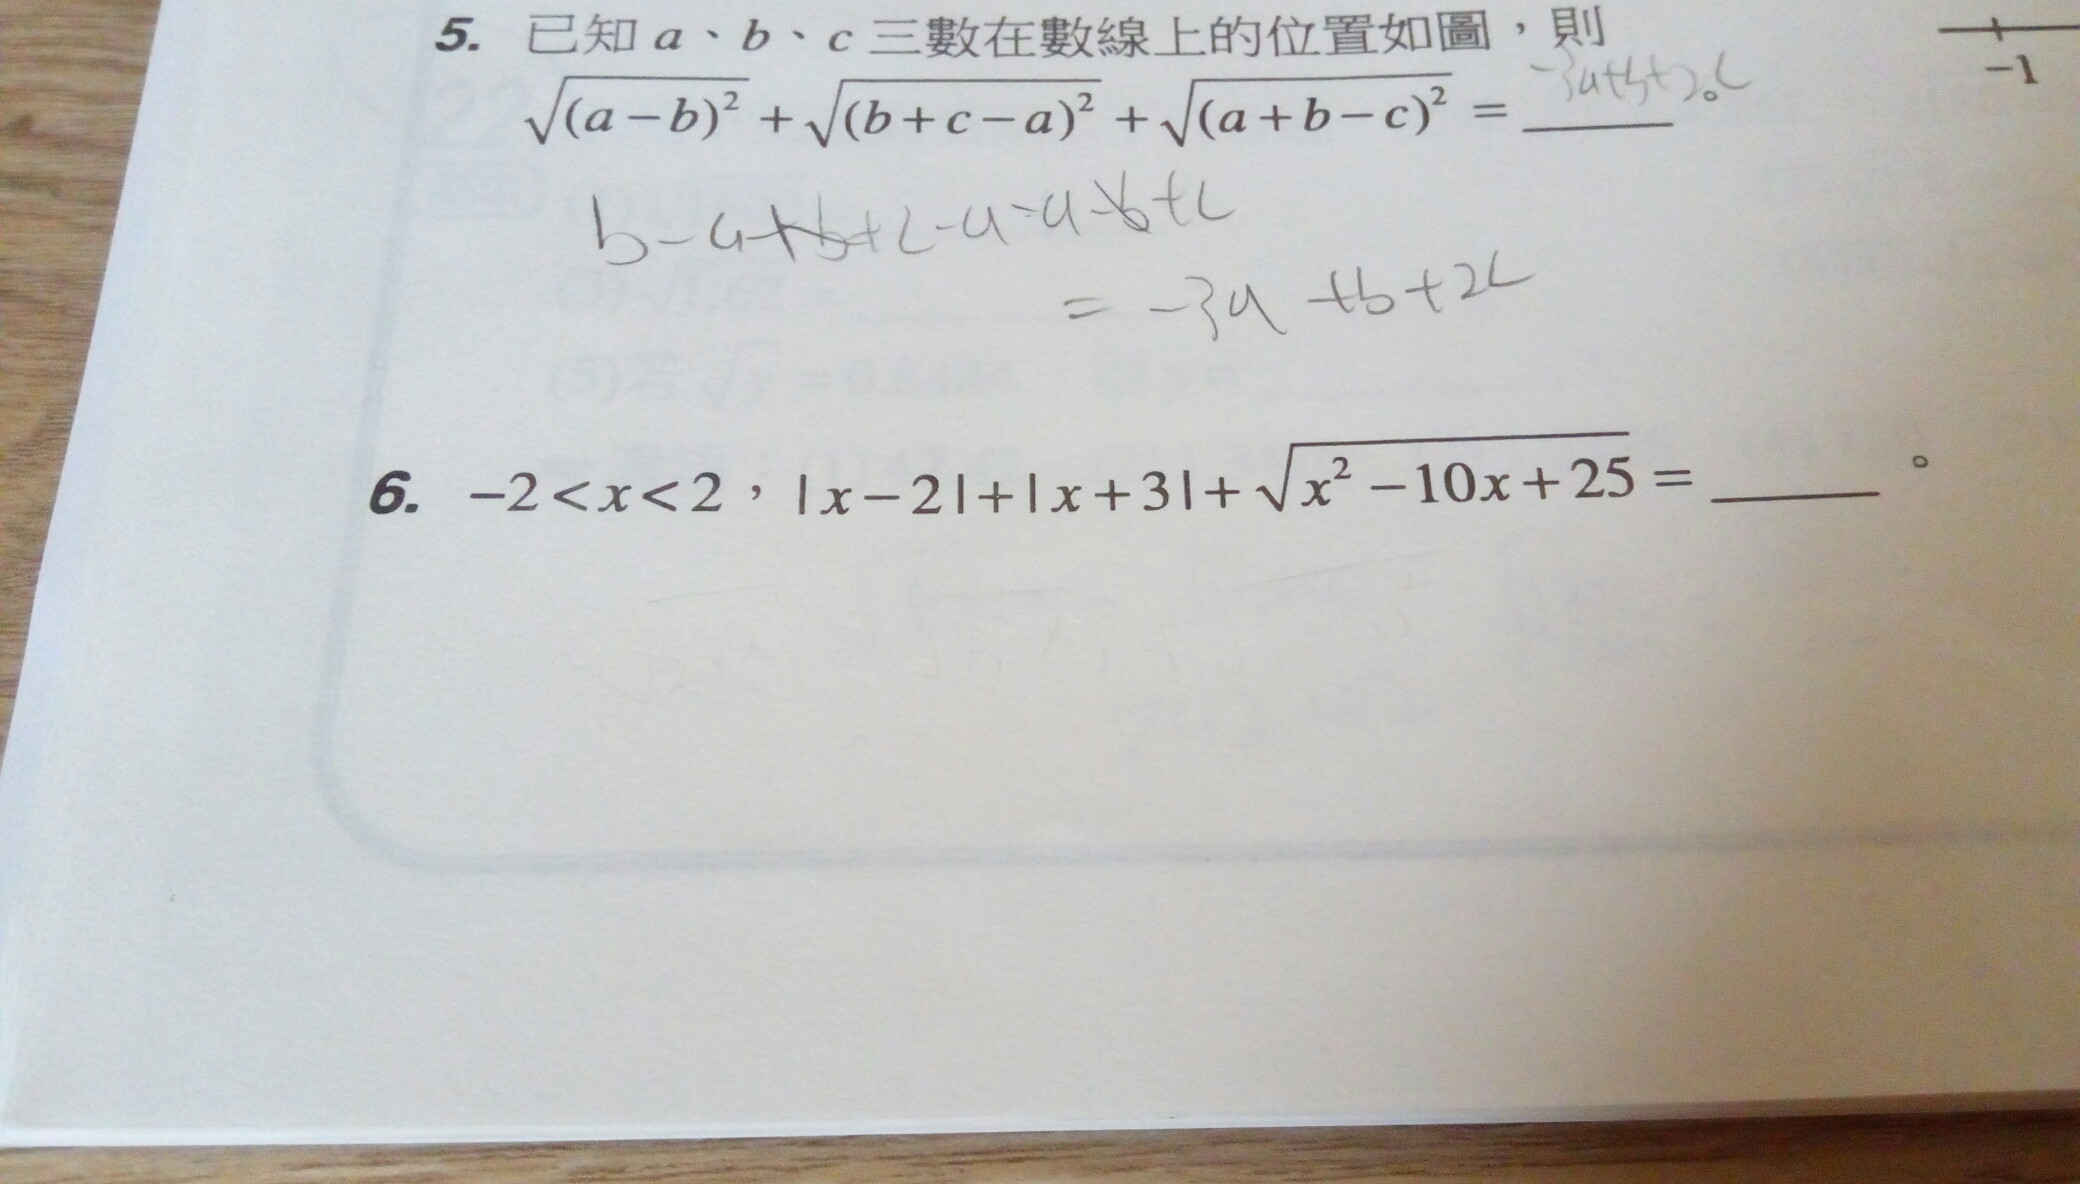 5. 已知 a、b、c 三數在數線上的位置如圖，則
√(a-b)² + √(b+c-a)² + √(a+b-c)² = -3a+b+2c 。
-1
b-a+b+c-a-a-b+c
= -3a +b+2c
6. -2<x<2，|x-2|+|x+3|+√x²-10x+25 = ______ 。